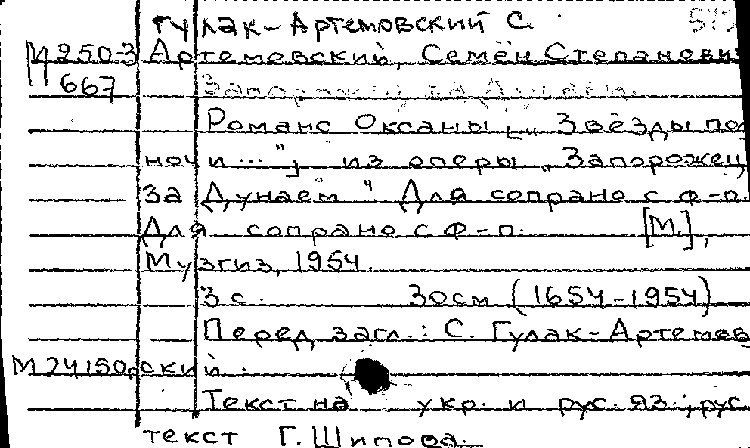 Гулак-Артемовский С.
М 250-3 Артемовский, Семён Степанович
667 Запорожец за Дунаем.
Романс Оксаны „Звёзды пол
ночи..."; из оперы „Запорожец
за Дунаем" Для сопрано с ф-п.
Для сопрано с ф-п. [М.],
Музгиз, 1954.
3 с. 30см (1654-1954)
Перед загл.: С. Гулак-Артемов
М 24150 ский.
Текст на укр. и рус. яз.; рус.
текст Г. Шипова.